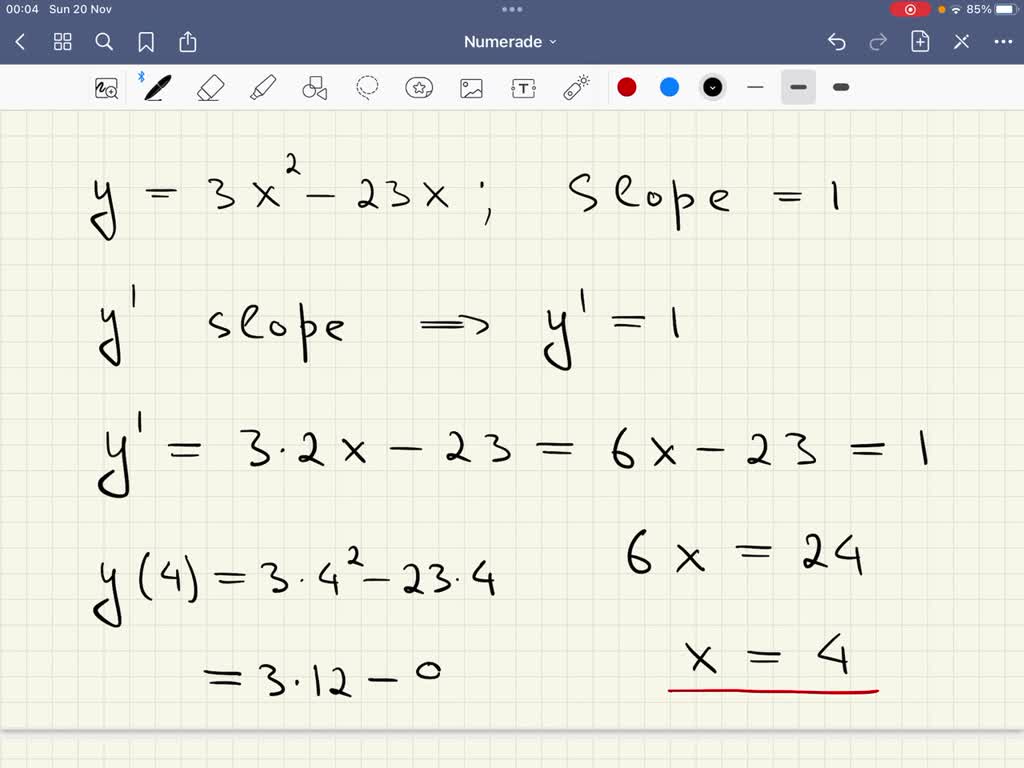 00:04 Sun 20 Nov 85%
Numerade
y = 3x² - 23x ; Slope = 1
y' slope ⟹ y' = 1
y' = 3·2x - 23 = 6x - 23 = 1
y(4) = 3·4² - 23·4
6x = 24
= 3·12 - 0
x = 4